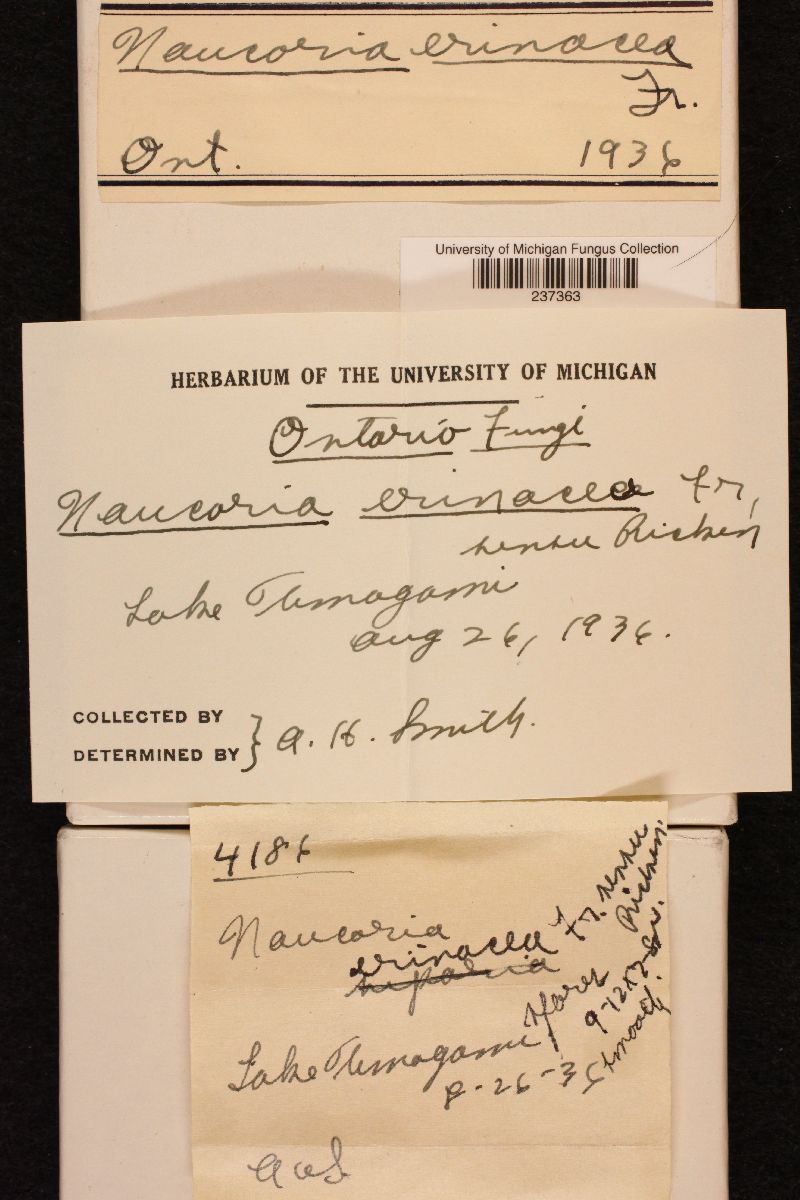 Naucoria erinacea
Fr.
Ont. 1936
University of Michigan Fungus Collection
237363
HERBARIUM OF THE UNIVERSITY OF MICHIGAN
Ontario Fungi
Naucoria erinacea Fr,
sensu Ricken
Lake Timagami
Aug 26, 1936.
COLLECTED BY
DETERMINED BY } A. H. Smith.
4186
Naucoria
erinacea Fr. sensu Ricken.
riparia
Lake Timagami
8-26-36
Spores
9-12 x
smooth.